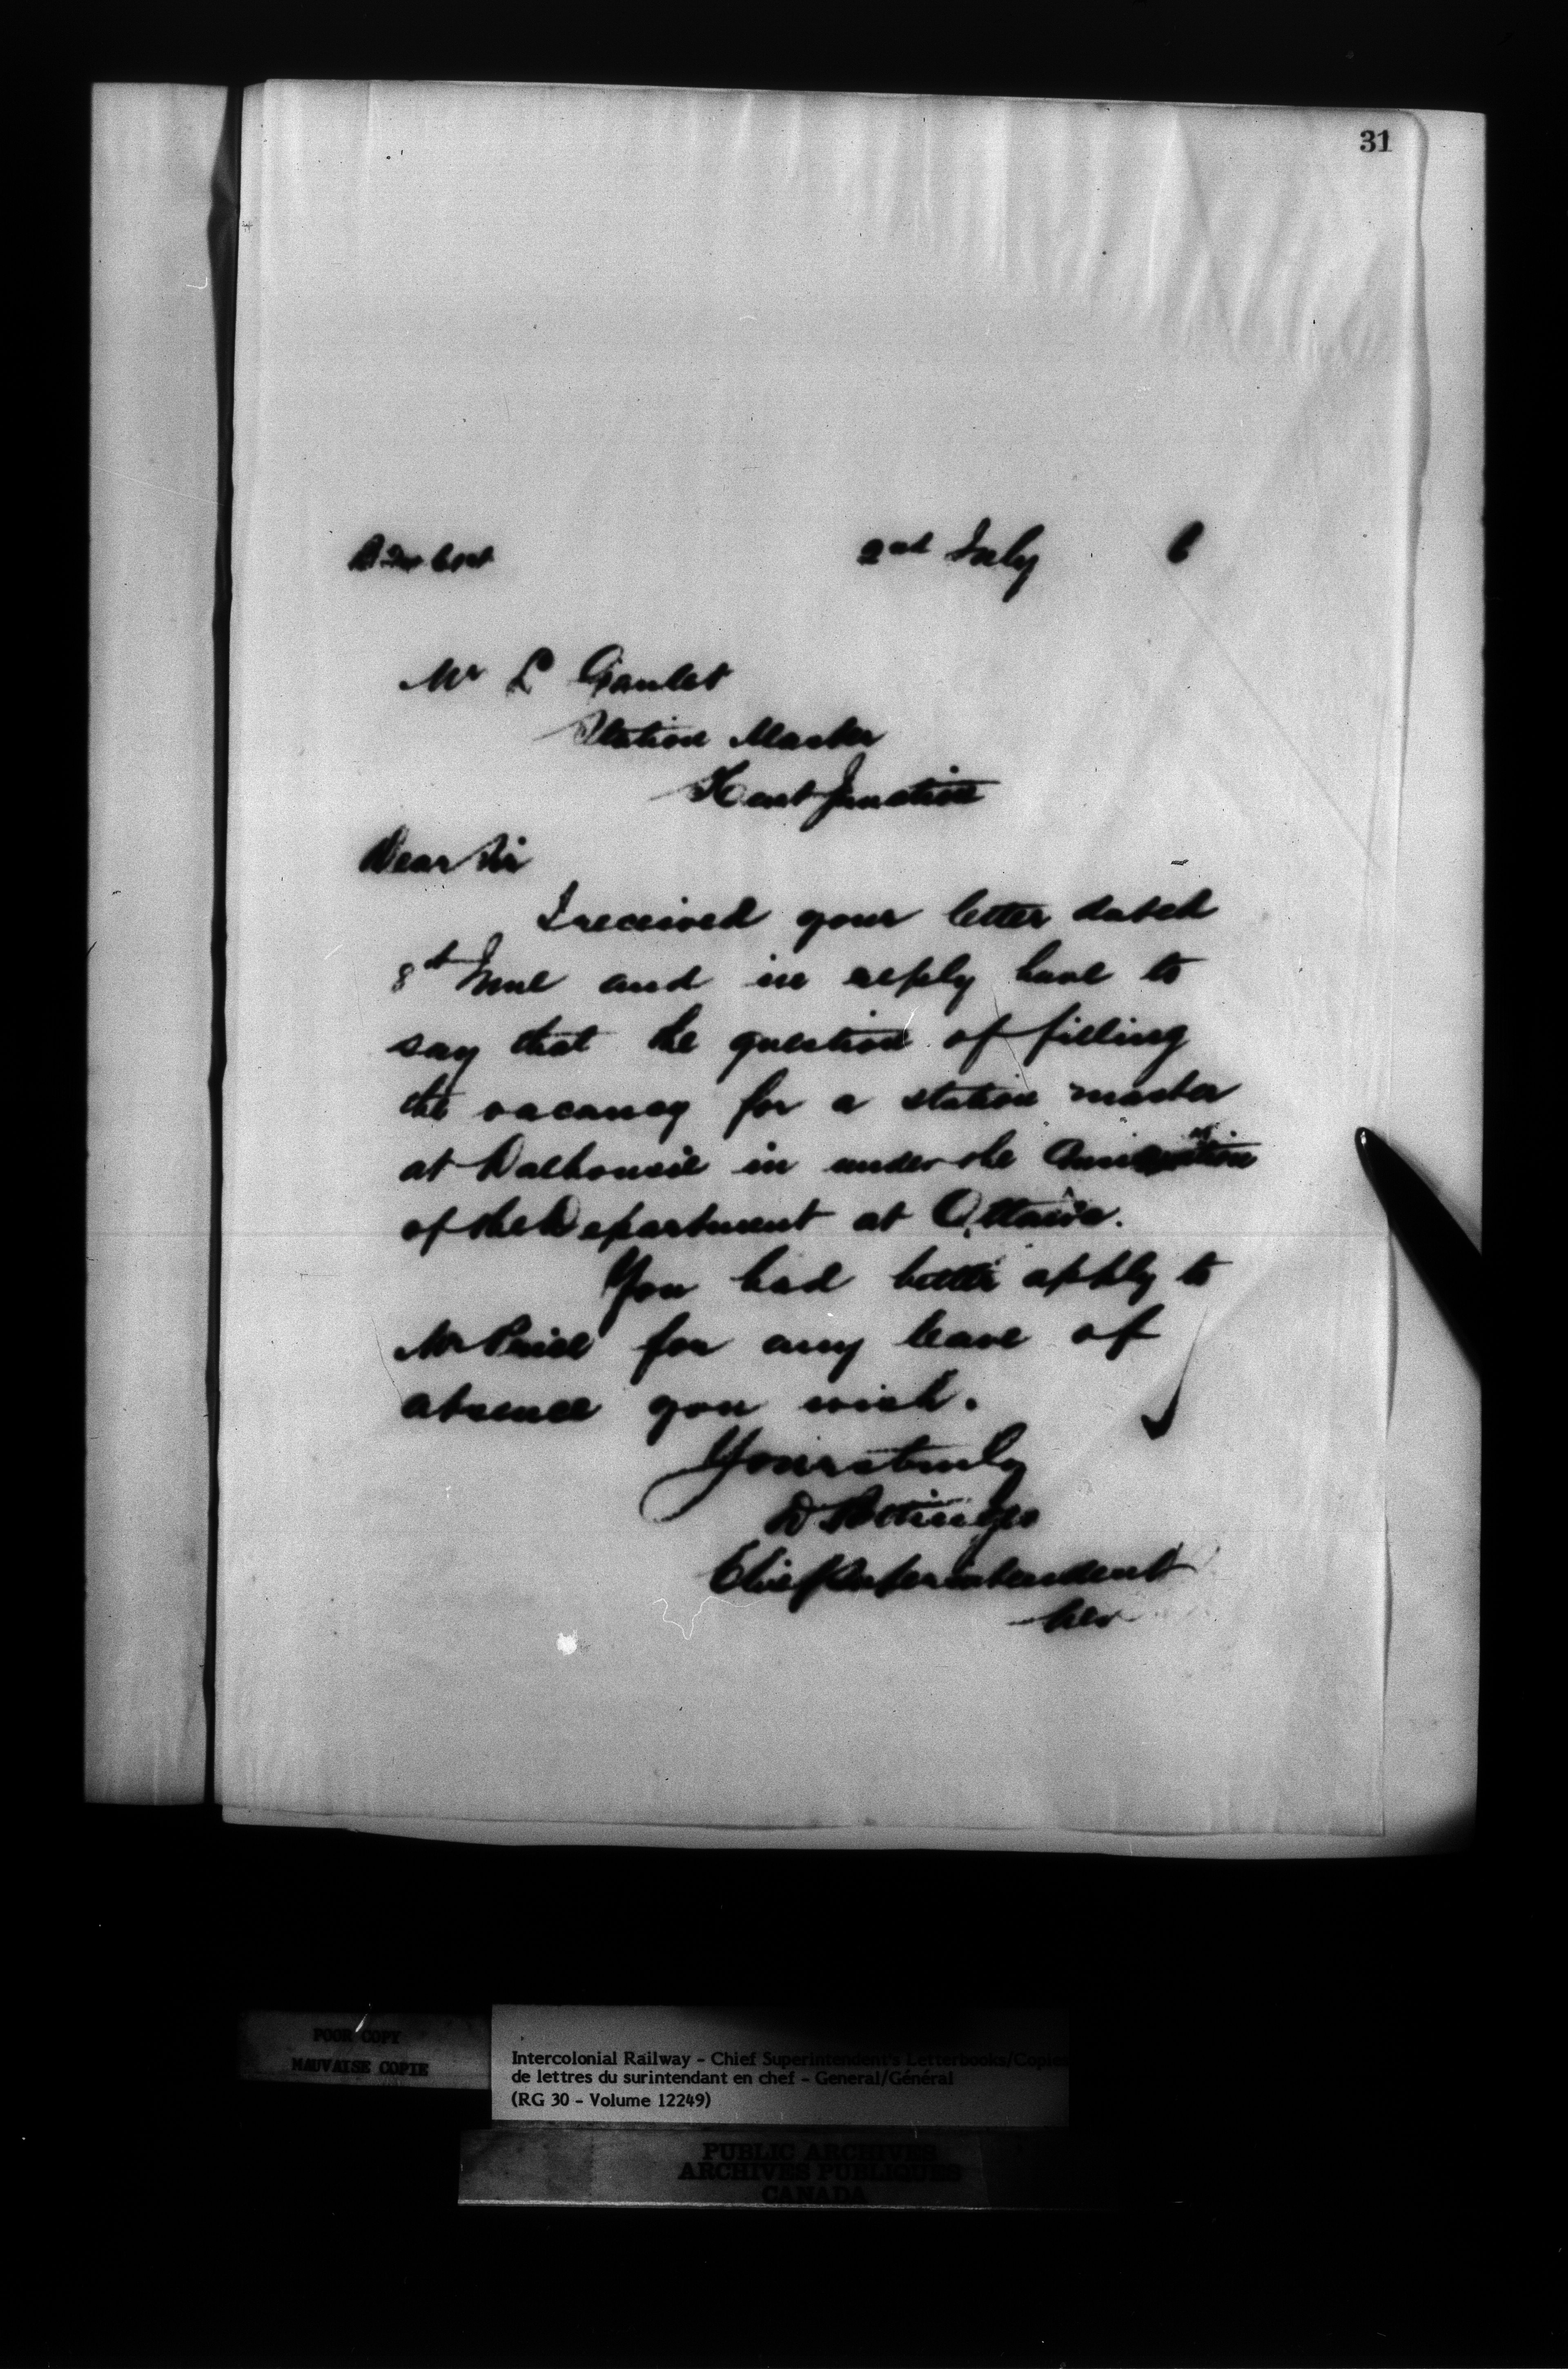 31
2nd July 6
Mr L Gaulet
Station Master
Kent Junction
Dear Sir
I received your letter dated
8th June and in reply have to
say that the question of filling
the vacancy for a station master
at Dalhousie is under the
of the Department at Ottawa.
You had better apply to
Mr Price for any leave of
absence you wish.
Yours truly
D Pottinger
Chief Superintendent
POOR COPY
MAUVAISE COPIE
Intercolonial Railway - Chief Superintendent's Letterbooks/Copies
de lettres du surintendant en chef - General/Général
(RG 30 - Volume 12249)
PUBLIC ARCHIVES
ARCHIVES PUBLIQUES
CANADA